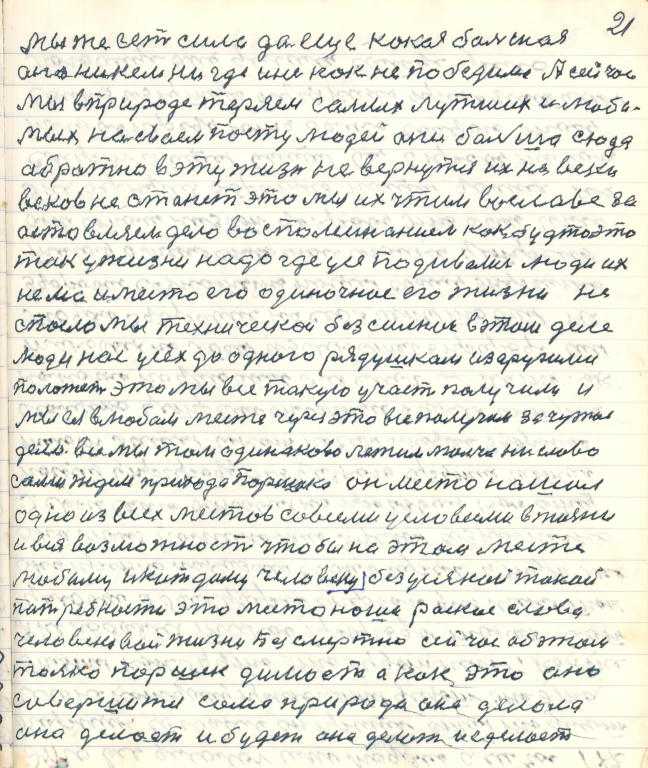 21
мы же сет сила да еще кокая болская
ана никем ни где ине как не победима А сейчас
мы в природе теряем самих лутших и люби-
мых на своем посту людей ани больша сюда
абратно в эту жизн не вернутся их на веки
веков не станет это мы их чтим вославе за
аставляем дело воспоминанием как будтоэто
так ужизни надо где усе подивалис люди их
нема иместо его одиночное его жизни не
стало мы технической безсилное вэтом деле
люди нас усех до одного рядушкам изаружили
положет это мы все такую участ получили и
мы ся влюбом месте через это все получим за чужое
дело. все мы там одинаково летим молча ни слова
сами ждем прихода Паршека он место нашол
одно из всех местов совсеми условеями в жизни
и вся возможности чтобы на этом месте
любому икаждому человеку без усякой такой
патребности это место ноша райкое слова
человек свой жизни безсмертно сейчас абэтом
толко паршек димаст а как это оно
совершится сама природа она делала
она деласт и будет она делат исделаст